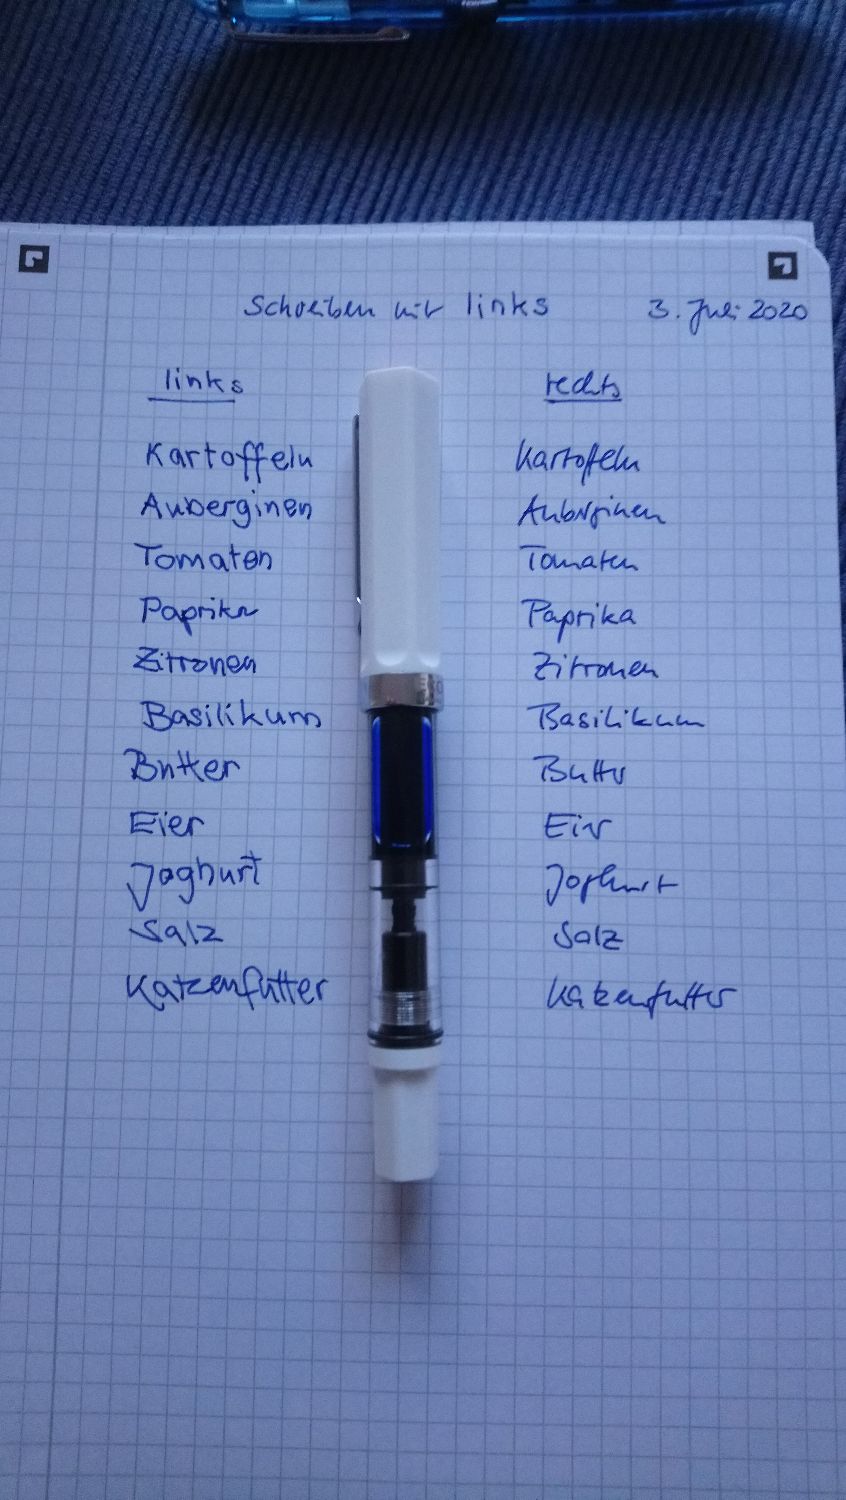 Schreiben mit links 3. Juli 2020
links rechts
Kartoffeln Kartoffeln
Auberginen Auberginen
Tomaten Tomaten
Paprika Paprika
Zitronen Zitronen
Basilikum Basilikum
Butter Butter
Eier Eier
Joghurt Joghurt
Salz Salz
Katzenfutter Katzenfutter